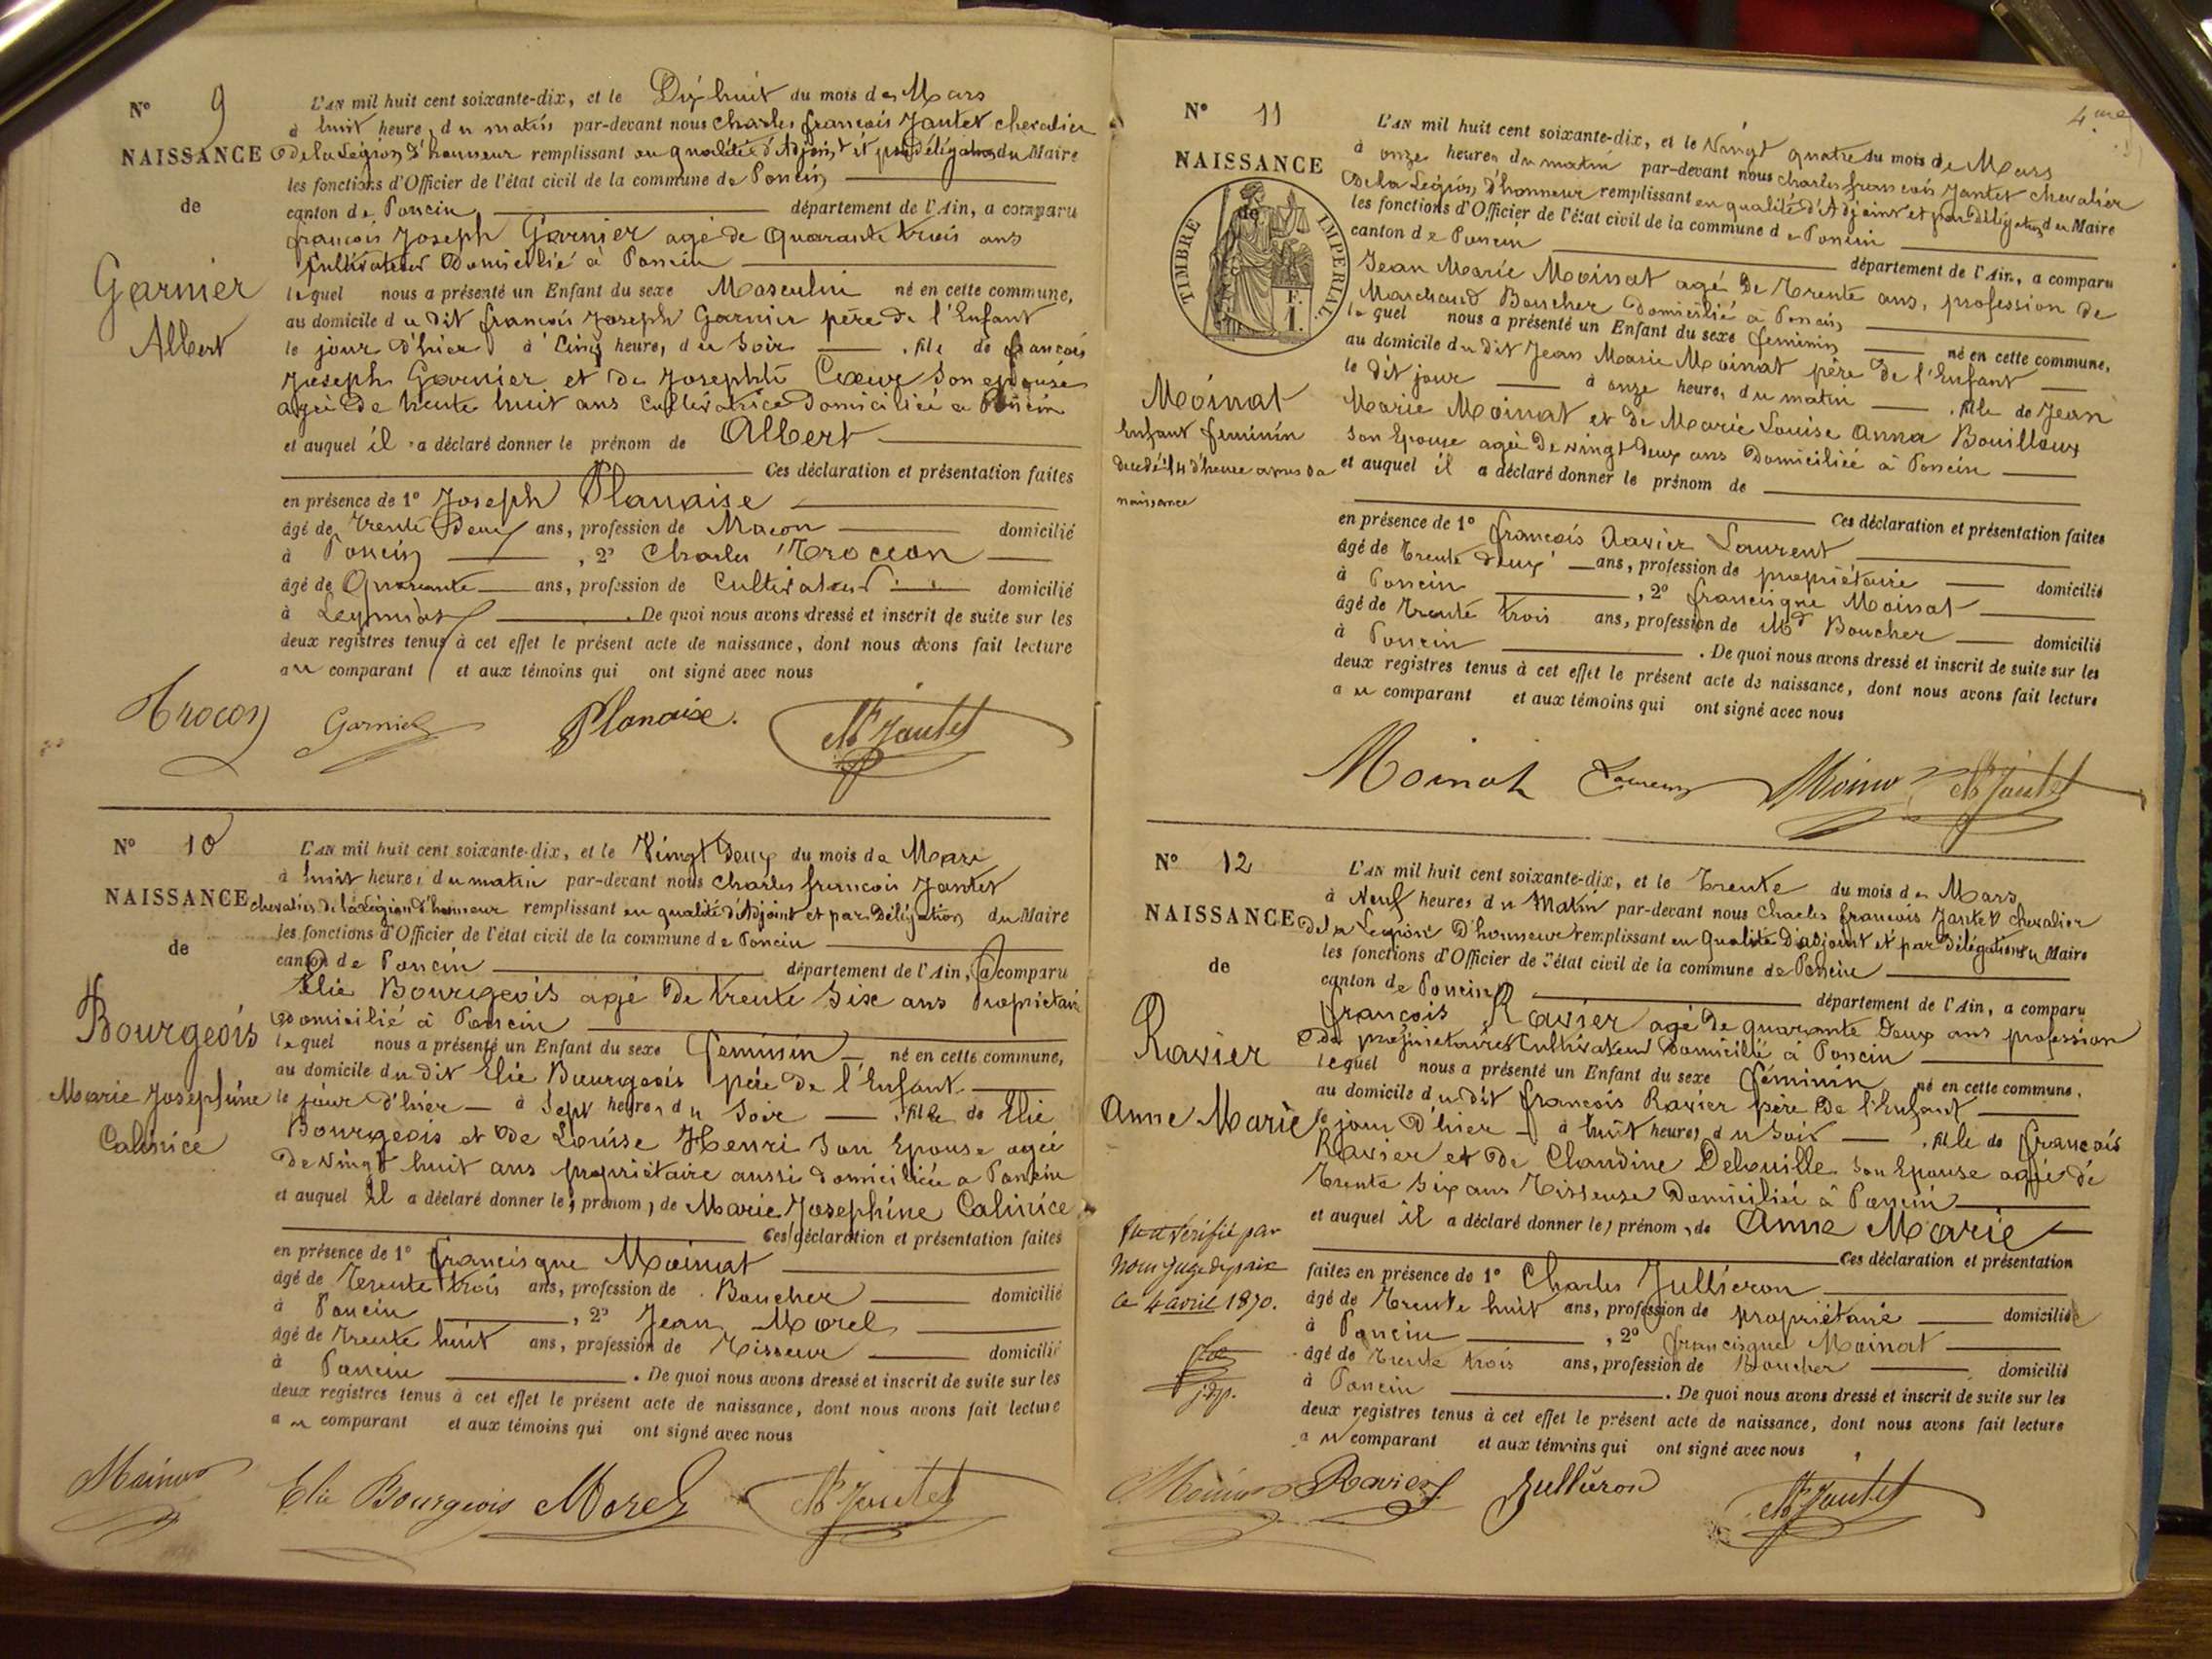 N° 9
NAISSANCE
de
Garnier
Albert
L'AN mil huit cent soixante-dix, et le Dix huit du mois de Mars
à huit heures du matin par-devant nous Charles françois Jantet chevalier
de la Légion d'honneur remplissant en qualité d'Adjoint et par délégation du Maire
les fonctions d'Officier de l'état civil de la commune de Poncin
canton de Poncin département de l'Ain, a comparu
françois Joseph Garnier agé de quarante trois ans
Cultivateur Domicilié à Poncin
lequel nous a présenté un Enfant du sexe Masculin né en cette commune,
au domicile du dit françois Joseph Garnier père de l'Enfant
le jour d'hier à Cinq heures du soir , fils de françois
Joseph Garnier et de Josephte Coeur son epouse
agée de trente huit ans cultivatrice Domiciliée a Poncin
et auquel il a déclaré donner le prénom de Albert
Ces déclaration et présentation faites
en présence de 1° Joseph Planaise
âgé de trente Deux ans, profession de Maçon domicilié
à Poncin , 2° Charles Trocon
âgé de Quarante ans, profession de Cultivateur domicilié
à Leymiat . De quoi nous avons dressé et inscrit de suite sur les
deux registres tenus à cet effet le présent acte de naissance, dont nous avons fait lecture
au comparant et aux témoins qui ont signé avec nous
Trocon Garnier Planaise. Ch Jantet
N° 10
NAISSANCE
de
Bourgeois
Marie Josephine
Calinice
L'AN mil huit cent soixante-dix, et le Vingt Deux du mois de Mars
à huit heures du matin par-devant nous Charles francois Jantet
chevalier de la Légion d'honneur remplissant en qualité d'Adjoint et par Délégation du Maire
les fonctions d'Officier de l'état civil de la commune de Poncin
canton de Poncin département de l'Ain, a comparu
Elie Bourgeois agé de trente six ans Propriétaire
domicilié à Poncin
lequel nous a présenté un Enfant du sexe feminin né en cette commune,
au domicile du dit Elie Bourgeois père de l'Enfant
le jour d'hier à sept heures du soir , fille de Elie
Bourgeois et de Louise Henri son Epouse agée
de vingt huit ans propriétaire aussi domiciliée a Poncin
et auquel il a déclaré donner les prénoms de Marie Josephine Calinice
Ces déclaration et présentation faites
en présence de 1° francisque Moinat
âgé de Trente trois ans, profession de Boucher domicilié
à Poncin , 2° Jean Morel
âgé de trente huit ans, profession de Tisseur domicilié
à Poncin . De quoi nous avons dressé et inscrit de suite sur les
deux registres tenus à cet effet le présent acte de naissance, dont nous avons fait lecture
au comparant et aux témoins qui ont signé avec nous
Moinat Elie Bourgeois Morel Ch Jantet
4me
N° 11
NAISSANCE
de
TIMBRE IMPERIAL
Moinat
Enfant feminin
decedé 1/4 d'heure apres sa
naissance
L'AN mil huit cent soixante-dix, et le Vingt quatre du mois de Mars
à onze heures du matin par-devant nous Charles francois Jantet chevalier
de la Légion d'honneur remplissant en qualité d'Adjoint et par Délégation du Maire
les fonctions d'Officier de l'état civil de la commune de Poncin
canton de Poncin département de l'Ain, a comparu
Jean Marie Moinat agé de Trente ans, profession de
Marchand Boucher Domicilié a Poncin
lequel nous a présenté un Enfant du sexe feminin né en cette commune,
au domicile du dit Jean Marie Moinat père de l'Enfant
le dit jour à onze heures du matin , fille de Jean
Marie Moinat et de Marie Louise Anna Bouilloux
son Epouse agée de vingt deux ans Domiciliée à Poncin
et auquel il a déclaré donner le prénom de
Ces déclaration et présentation faites
en présence de 1° françois Xavier Laurent
âgé de trente deux ans, profession de propriétaire domicilié
à Poncin , 2° francisque Moinat
âgé de trente trois ans, profession de Md Boucher domicilié
à Poncin . De quoi nous avons dressé et inscrit de suite sur les
deux registres tenus à cet effet le présent acte de naissance, dont nous avons fait lecture
au comparant et aux témoins qui ont signé avec nous
Moinat Laurent Moinat Ch Jantet
N° 12
NAISSANCE
de
Ravier
Anne Marie
L'AN mil huit cent soixante-dix, et le Trente du mois de Mars
à Neuf heures du Matin par-devant nous Charles francois Jantet chevalier
de la Legion d'honneur remplissant en qualité d'adjoint et par délégation du Maire
les fonctions d'Officier de l'état civil de la commune de Poncin
canton de Poncin département de l'Ain, a comparu
françois Ravier agé de quarante Deux ans profession
de propriétaire Cultivateur domicilié à Poncin
lequel nous a présenté un Enfant du sexe féminin né en cette commune,
au domicile du dit francois Ravier père de l'Enfant
le jour d'hier à huit heures du soir , fille de françois
Ravier et de Claudine Delouille son Epouse agée de
trente six ans Tisseuse Domiciliée à Poncin
et auquel il a déclaré donner les prénoms de Anne Marie
Ces déclaration et présentation
faites en présence de 1° Charles Jullieron
âgé de trente huit ans, profession de propriétaire domicilié
à Poncin , 2° francisque Moinat
âgé de trente trois ans, profession de Boucher domicilié
à Poncin . De quoi nous avons dressé et inscrit de suite sur les
deux registres tenus à cet effet le présent acte de naissance, dont nous avons fait lecture
au comparant et aux témoins qui ont signé avec nous
Vu et Vérifié par
nous Juge de paix
ce 4 avril 1870.
j. d. p.
Moinat Ravier Jullieron Ch Jantet